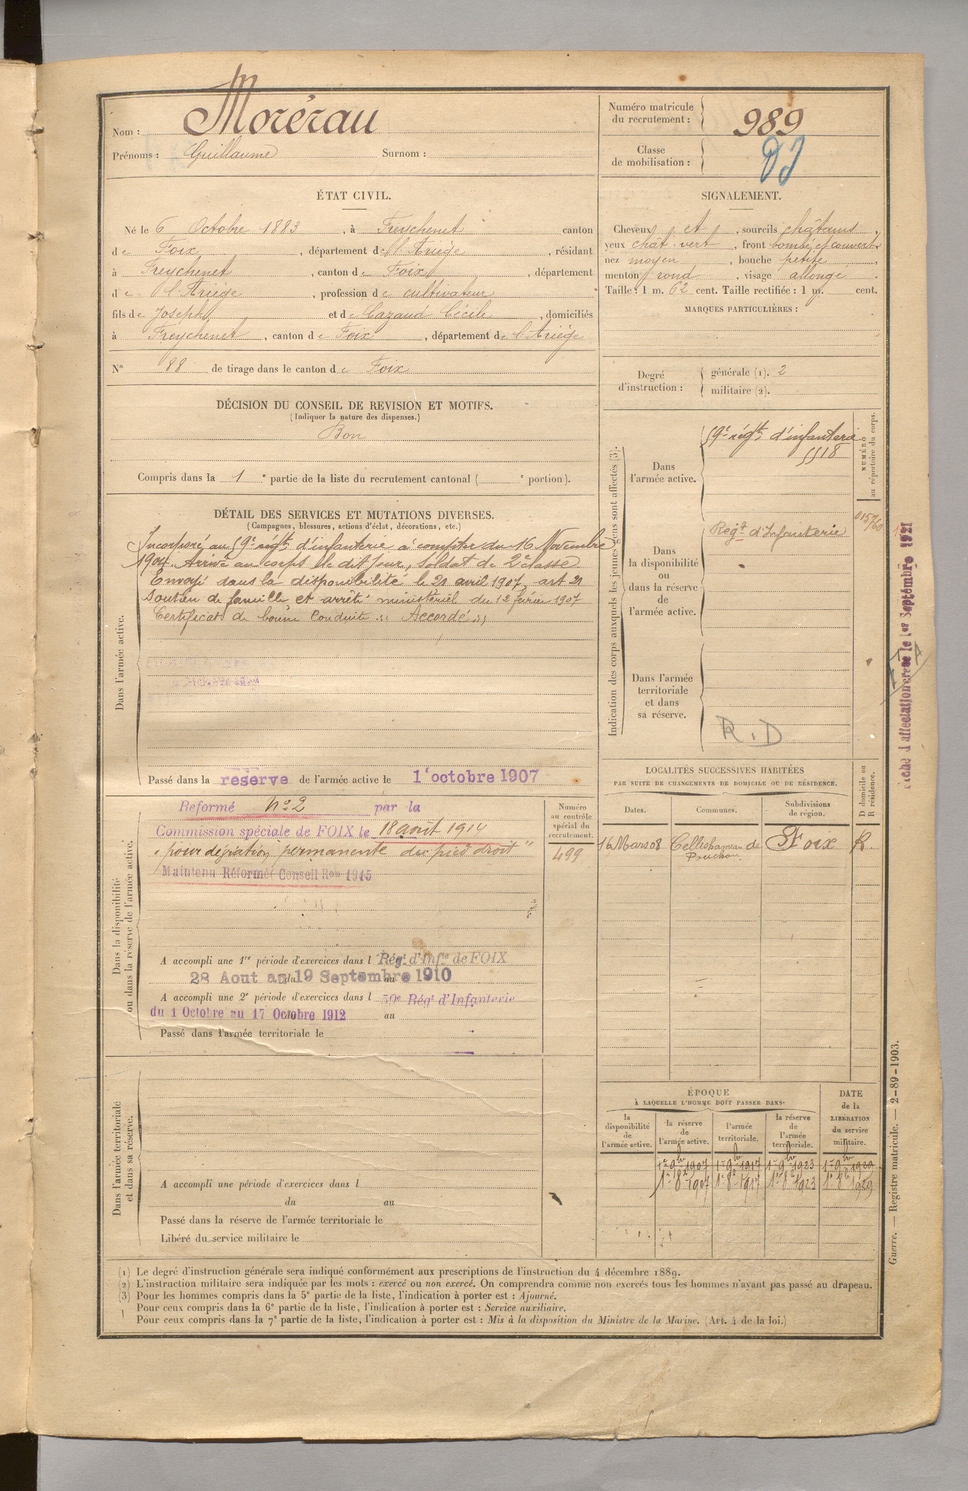 Nom : Morérau
Prénoms : Guillaume Surnom :
Numéro matricule du recrutement : 989
Classe de mobilisation :
ÉTAT CIVIL.
Né le 6 Octobre 1883, à Freychenet canton
de Foix, département de l'Ariège, résidant
à Freychenet, canton de Foix, département
de l'Ariège, profession de cultivateur
fils de Joseph et de Cazaud Cécile, domiciliés
à Freychenet, canton de Foix, département de l'Ariège
N° 88 de tirage dans le canton de Foix
SIGNALEMENT.
Cheveux et, sourcils châtains,
yeux chat. vert, front bombé et couvert
nez moyen, bouche petite,
menton rond, visage allongé.
Taille : 1 m. 62 cent. Taille rectifiée : 1 m. cent.
MARQUES PARTICULIÈRES :
Degré d'instruction : générale (1). 2
militaire (2).
DÉCISION DU CONSEIL DE REVISION ET MOTIFS.
(Indiquer la nature des dispenses.)
Bon
Compris dans la 1e partie de la liste du recrutement cantonal ( e portion).
DÉTAIL DES SERVICES ET MUTATIONS DIVERSES.
(Campagnes, blessures, actions d'éclat, décorations, etc.)
Dans l'armée active.
Incorporé au 59e régt d'infanterie à compter du 16 Novembre
1904. Arrivé au corps le dit jour, soldat de 2e classe
Envoyé dans la disponibilité le 21 avril 1907, art 21
Soutien de famille et arrêté ministériel du 12 février 1907
Certificat de bonne Conduite " Accordé "
Passé dans la réserve de l'armée active le 1er octobre 1907
Indication des corps auxquels les jeunes gens sont affectés (3).
Dans l'armée active.
59e régt d'infanterie
5518
NUMÉRO au répertoire du corps.
Dans la disponibilité ou dans la réserve de l'armée active.
Régt d'Infanterie
Dans l'armée territoriale et dans sa réserve.
R.D
Fiche d'affectation créée le 1er Septembre 1921
Dans la disponibilité ou dans la réserve de l'armée active.
Reformé n° 2 par la
Commission spéciale de FOIX le 18 août 1914
" pour déviation permanente du pied droit "
Maintenu Réformé Conseil Ron 1915
Numéro au contrôle spécial du recrutement.
499
A accompli une 1re période d'exercices dans l Rég. d'Infie de FOIX
28 Aout au 19 Septembre 1910
A accompli une 2e période d'exercices dans l 59e Régt d'Infanterie
du 1 Octobre au 17 Octobre 1912 au
Passé dans l'armée territoriale le
LOCALITÉS SUCCESSIVES HABITÉES
PAR SUITE DE CHANGEMENTS DE DOMICILE OU DE RÉSIDENCE.
Dates. Communes. Subdivisions de région. D domicile ou R résidence.
16 Mars 08 de Foix R.
Dans l'armée territoriale et dans sa réserve.
A accompli une période d'exercices dans l
du au
Passé dans la réserve de l'armée territoriale le
Libéré du service militaire le
ÉPOQUE
À LAQUELLE L'HOMME DOIT PASSER DANS
la disponibilité de l'armée active. la réserve de l'armée active. l'armée territoriale. la réserve de l'armée territoriale. DATE de la LIBÉRATION du service militaire.
1er 9bre 1907 1er 9bre 1917 1er 9bre 1923 1er 9bre 1929
1er 8bre 1907 1er 8bre 1917 1er 8bre 1923 1er 8bre 1929
(1) Le degré d'instruction générale sera indiqué conformément aux prescriptions de l'instruction du 4 décembre 1889.
(2) L'instruction militaire sera indiquée par les mots : exercé ou non exercé. On comprendra comme non exercés tous les hommes n'ayant pas passé au drapeau.
(3) Pour les hommes compris dans la 5e partie de la liste, l'indication à porter est : Ajourné.
Pour ceux compris dans la 6e partie de la liste, l'indication à porter est : Service auxiliaire.
Pour ceux compris dans la 7e partie de la liste, l'indication à porter est : Mis à la disposition du Ministre de la Marine. (Art. 4 de la loi.)
Guerre. — Registre matricule. — 2-89-1903.